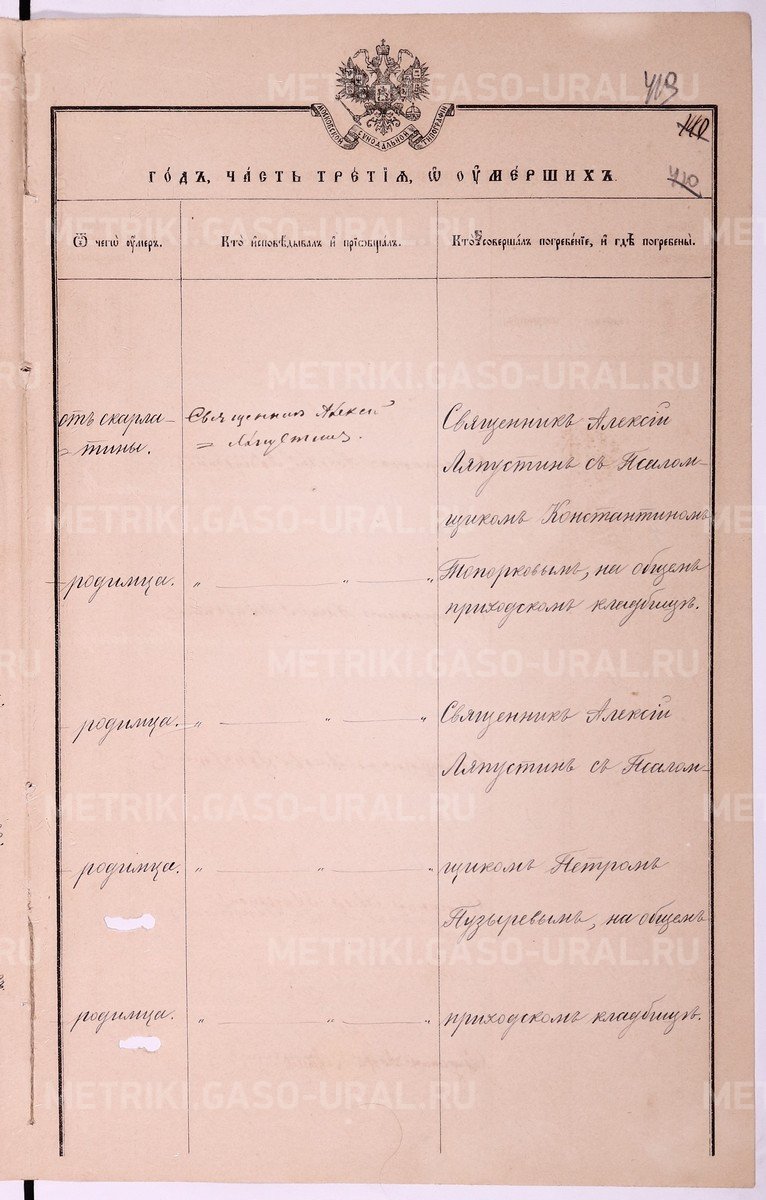 METRIKI.GASO-URAL.RU
419
140
410
МОСКОВСКОЙ СѴНОДАЛЬНОЙ ТИПОГРАФІИ
ГОДЪ, ЧАСТЬ ТРЕТІѦ, Ѿ ОУМЕРШИХЪ.
Ѿ чегѡ оумеръ.
Кто исповѣдывалъ и пріобщалъ.
Кто совершалъ погребеніе, и гдѣ погребены.
отъ скарла-
= тины.
Священникъ Алексій
= Ляпустинъ.
Священникъ Алексій
Ляпустинъ съ Псалом-
щикомъ Константиномъ
родимца. " — " — "
Топорковымъ, на общемъ
приходскомъ кладбищѣ.
родимца. " — " — "
Священникъ Алексій
Ляпустинъ съ Псалом-
родимца. " — " — "
щикомъ Петромъ
Пузыревымъ, на общемъ
родимца. " — " — "
приходскомъ кладбищѣ.